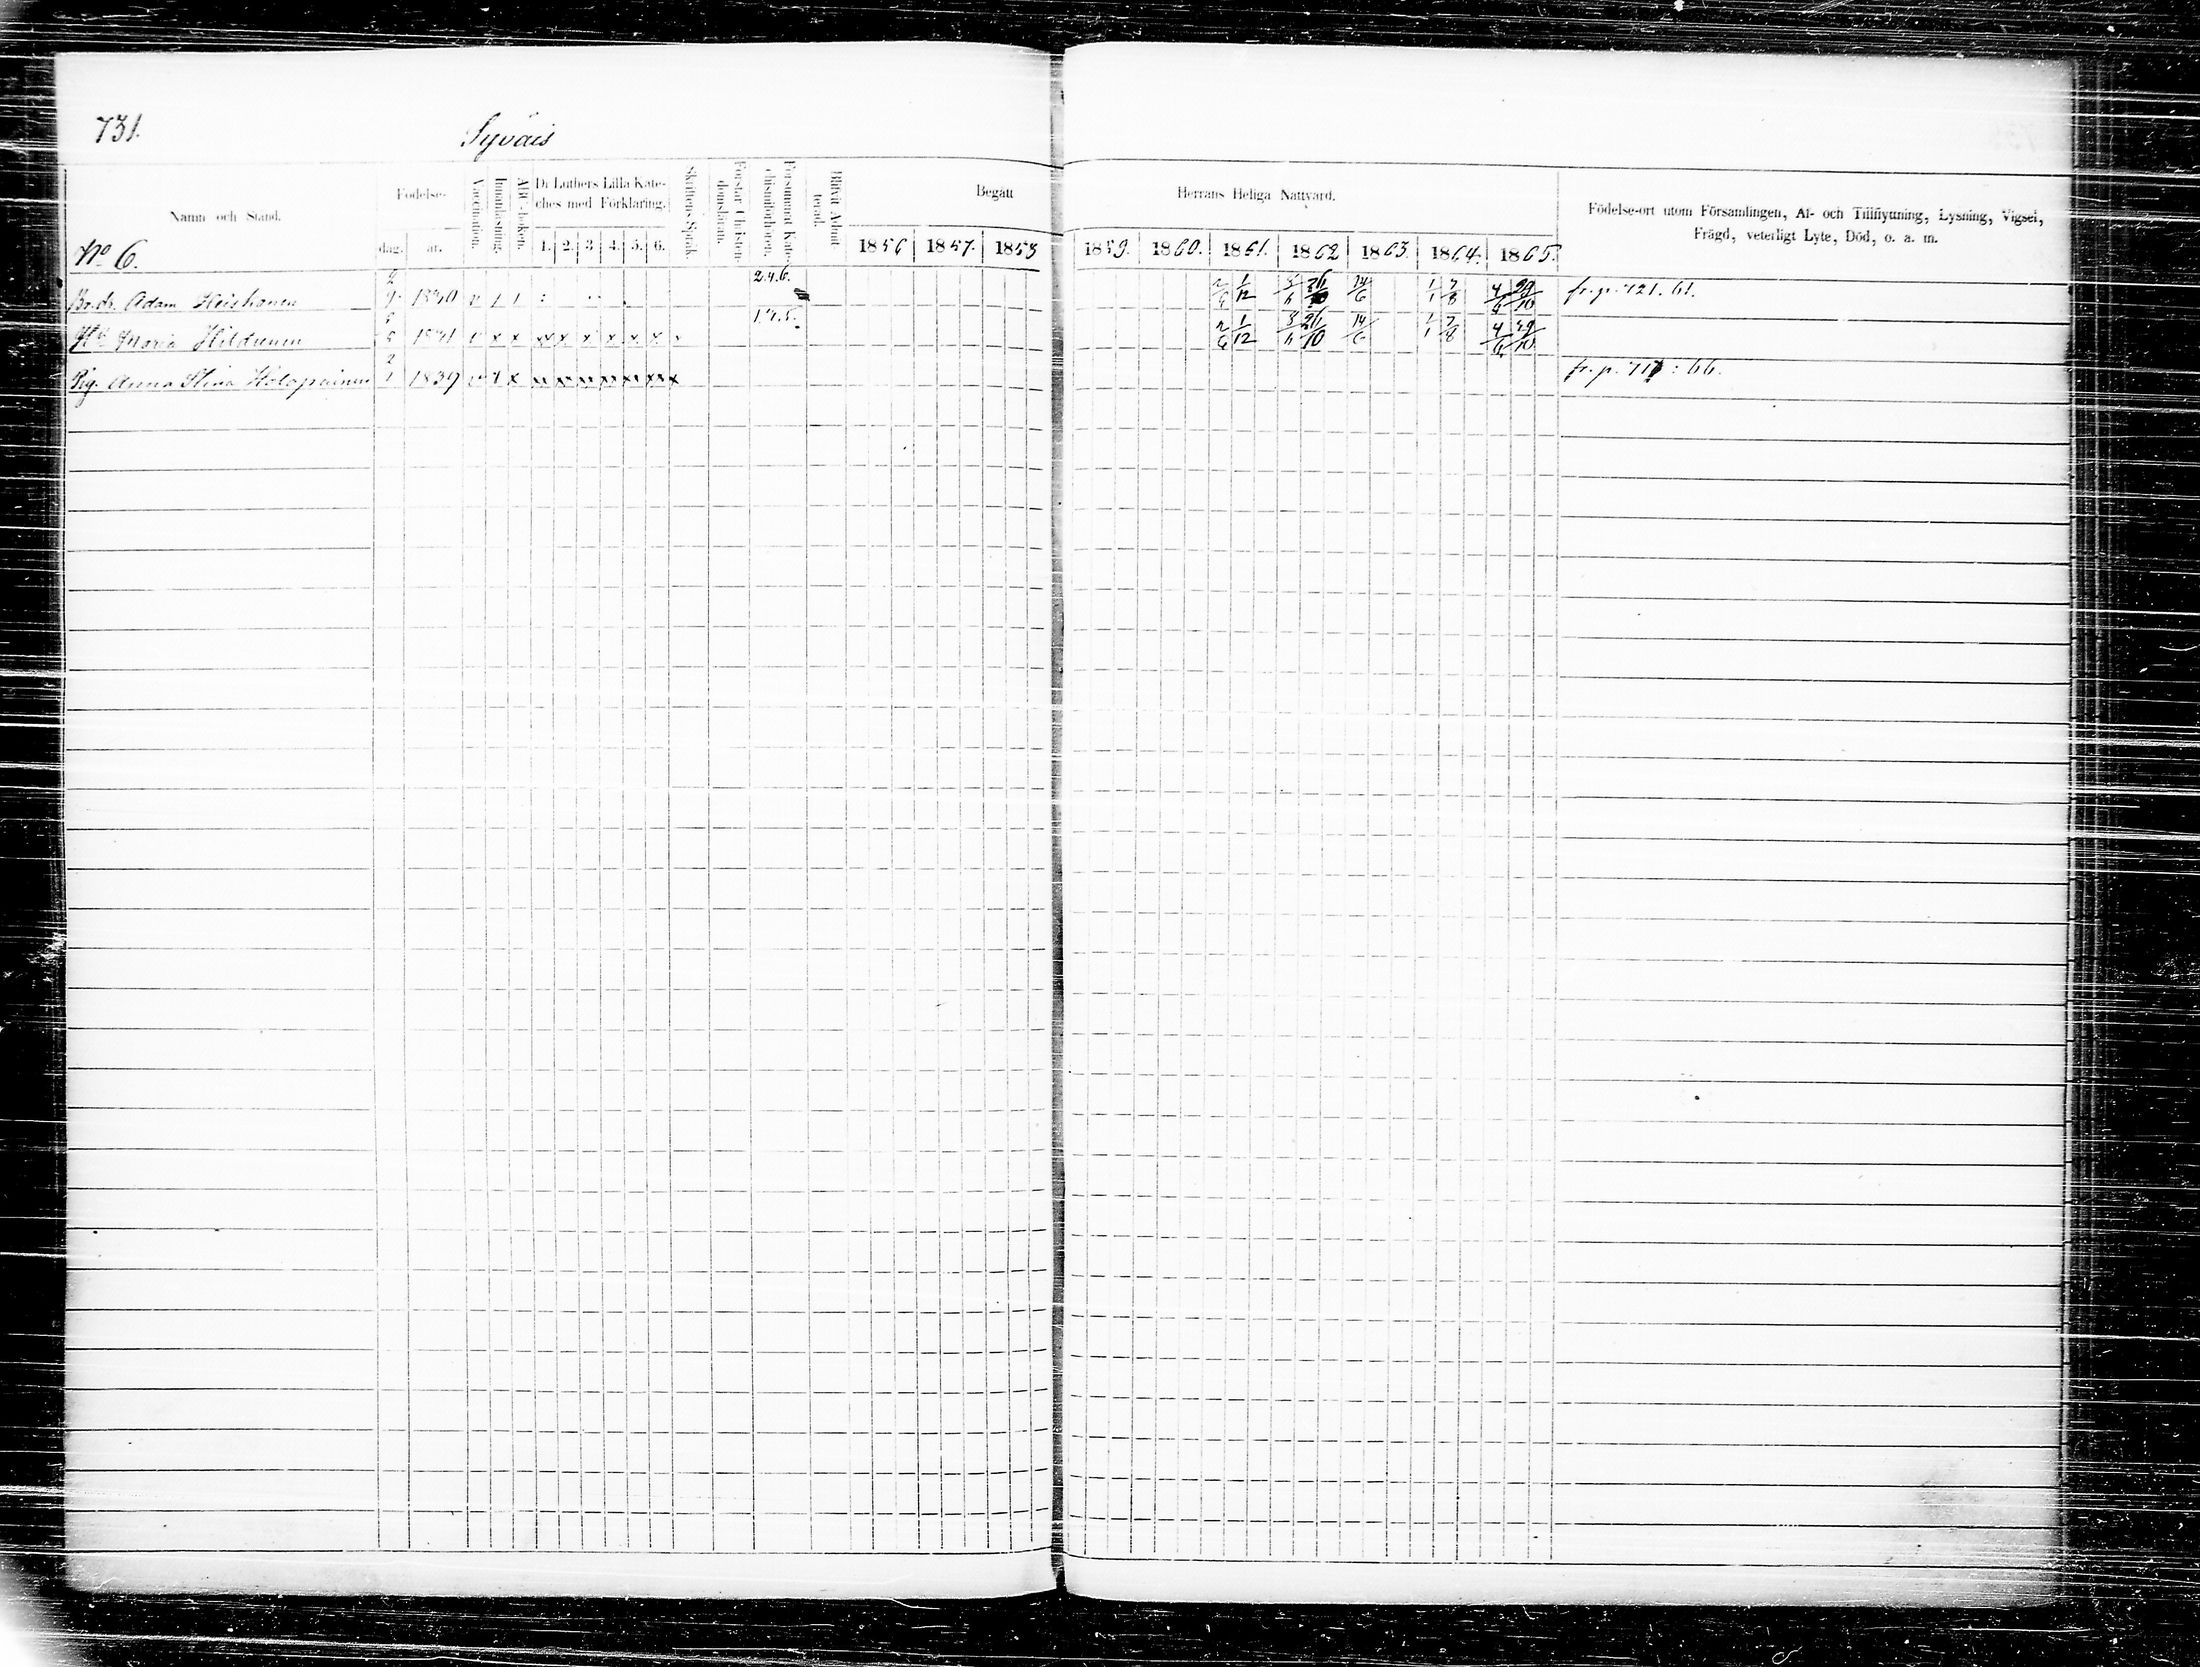 731.
Syväis
Namn och Stånd.
Födelse-
dag.
år.
Vaccination.
Innanläsning.
ABC-boken.
Dr Luthers Lilla Kate-
ches med Förklaring.
1. 2. 3 4. 5. 6.
Skriftens Språk.
Förstår Christen-
domsläran.
Försummat Kate-
chismiförhören.
Blifvit Admit-
terad.
Begått
1856 1857. 1858
Herrans Heliga Nattvard.
1859. 1860. 1861. 1862 1863. 1864. 1865.
Födelse-ort utom Församlingen, Af- och Tillflyttning, Lysning, Vigsel,
Frägd, veterligt Lyte, Död, o. a. m.
No 6.
Adam Heiskanen 2/9 1830 2.4.6. 2/6 1/12 26/10 14/6 1/1 7/8 4/6 29/10 fr. p. 721. 61.
Maria x x x x x x x x 1.4.5. 2/6 1/12 26/10 14/6 1/1 7/8 4/6 29/10
Pig. Anna Stina Holopainen 2/1 1839 fr. p. : 66.